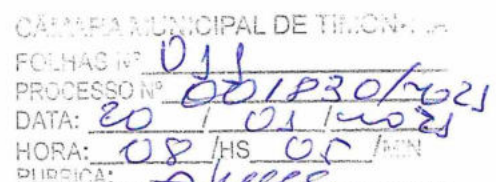 CÂMARA MUNICIPAL DE TIMON-MA
FOLHAS Nº 011
PROCESSO Nº 001830/2021
DATA: 20 / 01 / 2021
HORA: 08 /HS 05 /MIN
RUBRICA: